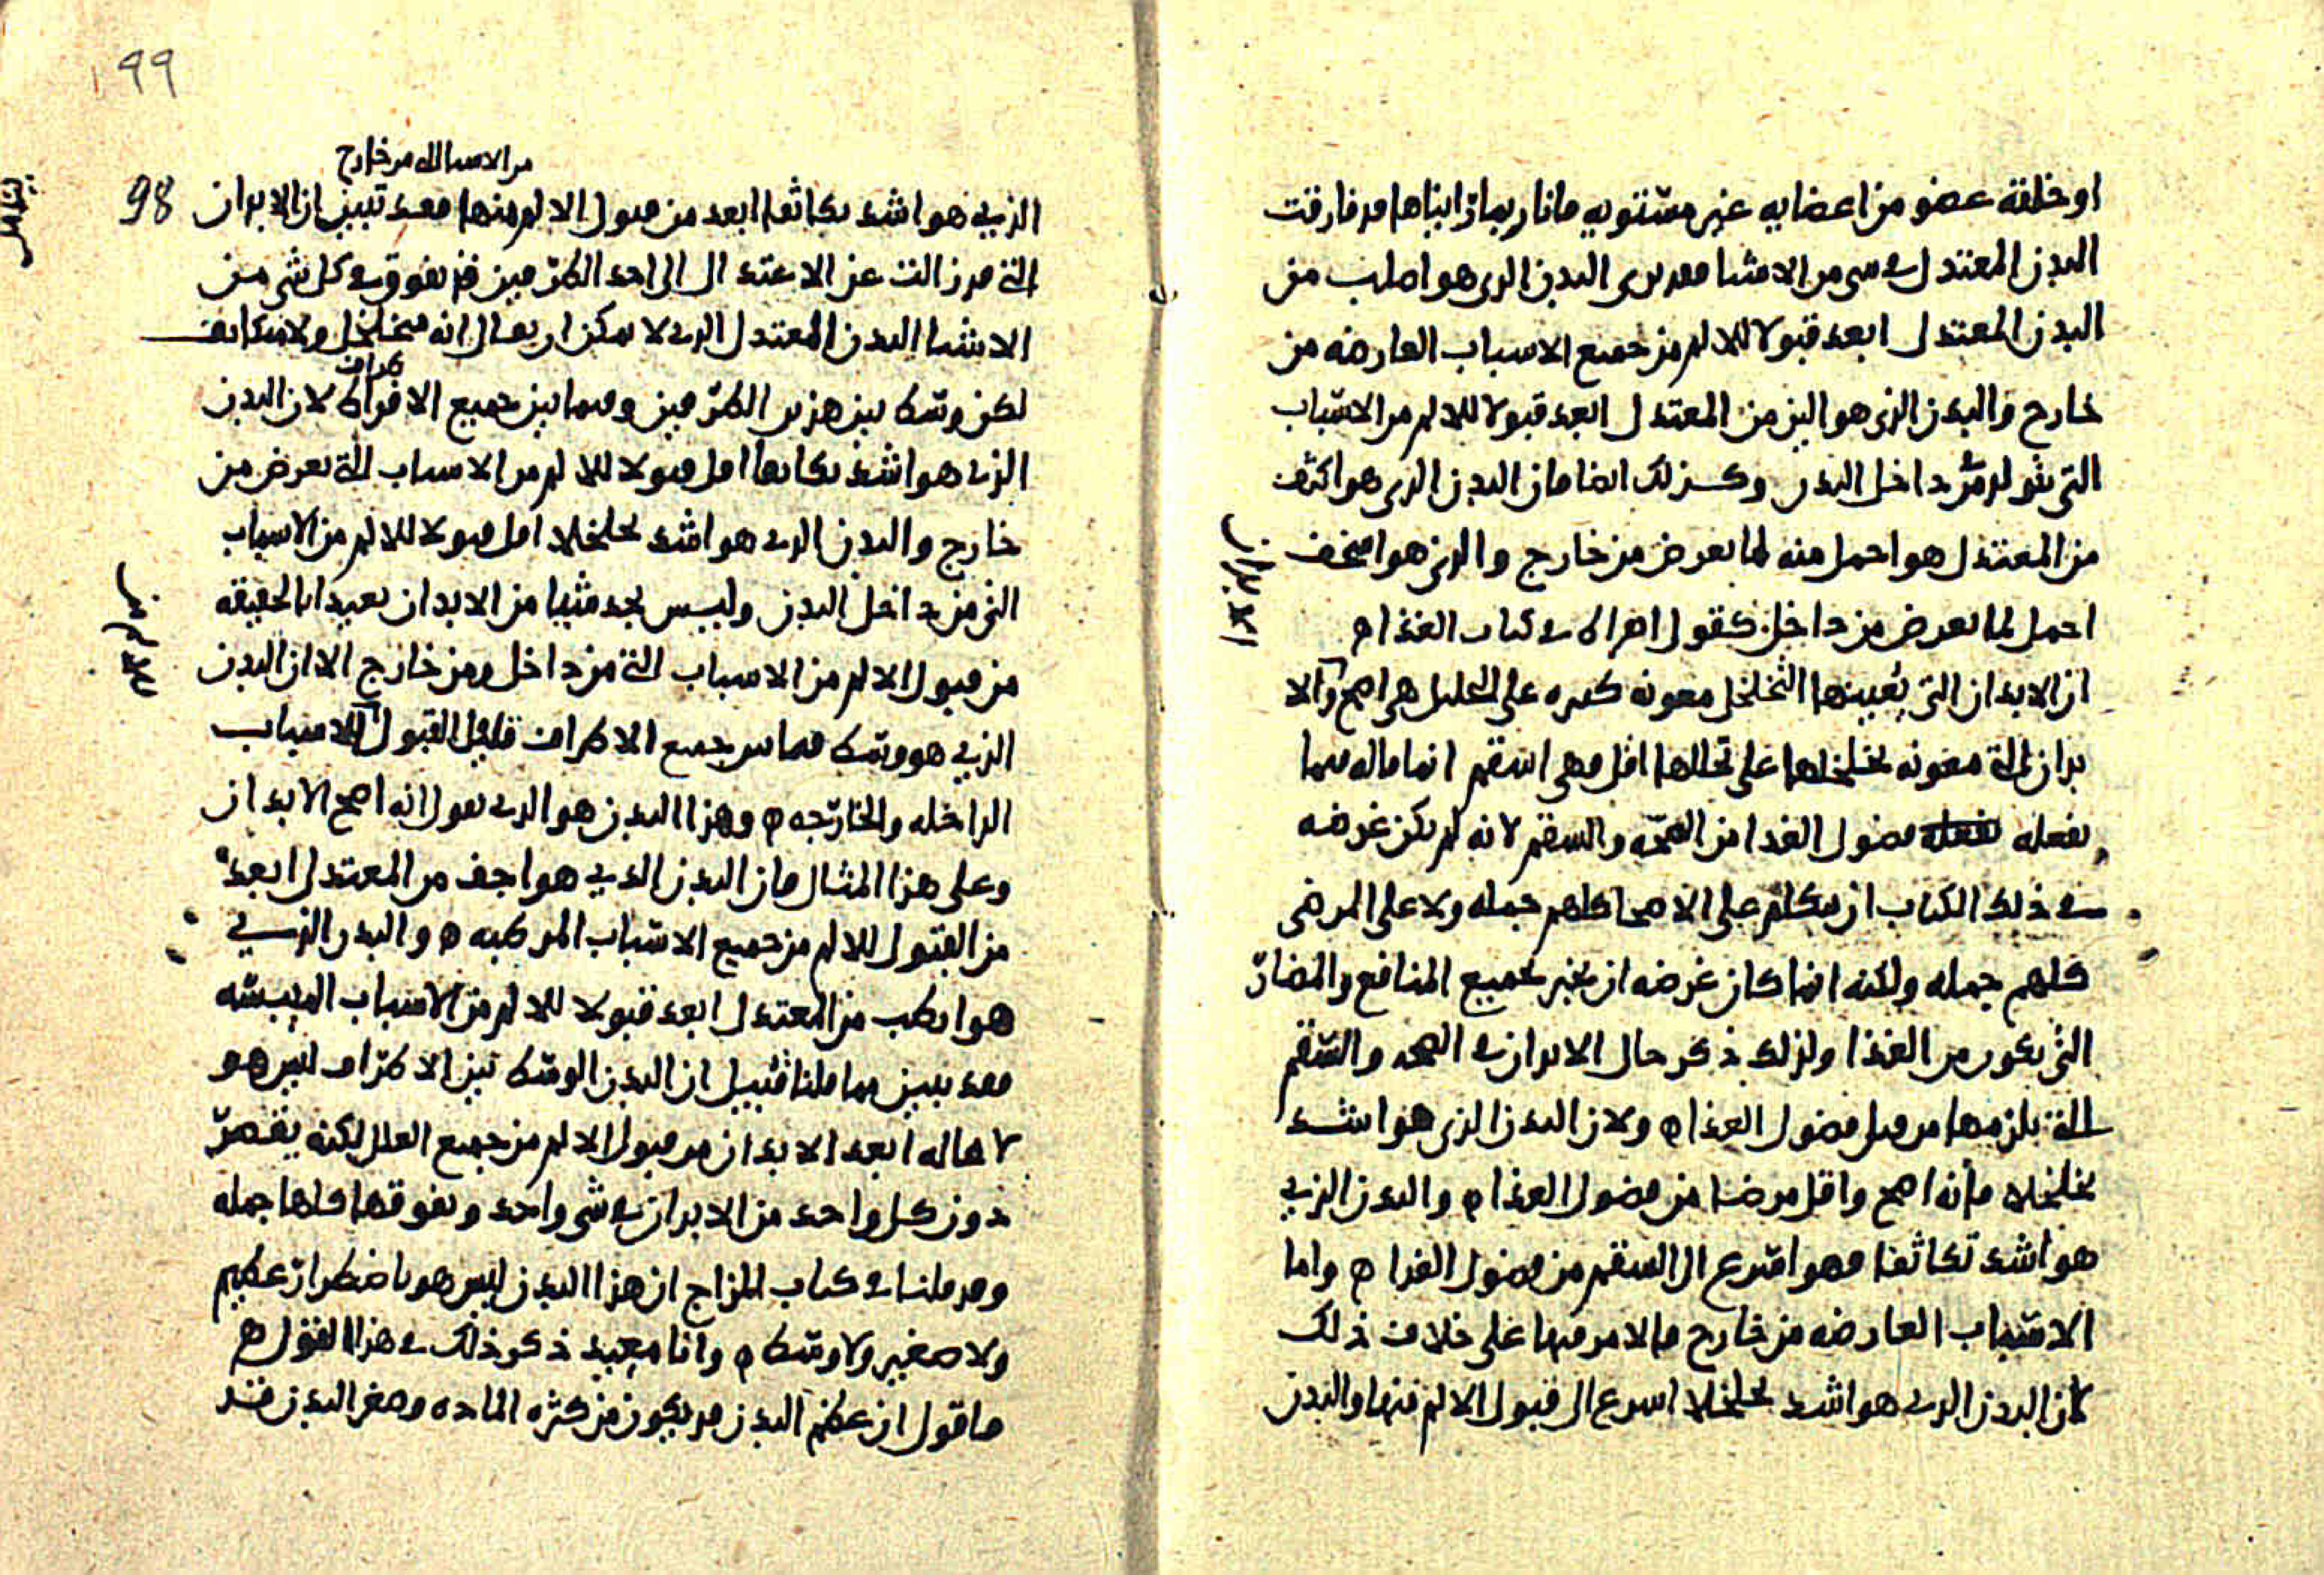 او خلقة عضو من اعضايه غير مستويه فانا ربما رايناها قد فارقت
البدن المعتدل في شي من الاشيا فقد نرى البدن الذي هو اصلب من
البدن المعتدل ابعد قبولا للالم من جميع الاسباب العارضه من
خارج والبدن الذي هو الين من المعتدل ابعد قبولا للالم من الاسباب
التي تتولد من داخل البدن وكذلك ايضا فان البدن الذي هو اكثف
من المعتدل هو احمل منه لما يعرض من خارج والذي هو اسخف
احمل لما يعرض من داخل كقول ابقراط في كتاب الغذا ه
ان الابدان التي يعينها التخلخل معونه كثيره على التحليل هي اصح والا
بدان التي معونه تخلخلها على تحللها اقل وهي اسقم انما قاله فيما
يفعله فضول الغذا من الصحه والسقم لانه لم يكن غرضه
في ذلك الكتاب ان يتكلم على الاصحا كلهم جمله ولا على المرضى
كلهم جمله ولكنه انما كان غرضه ان يخبر بجميع المنافع والمضار
التي يكون من الغذا ولذلك ذكر حال الابدان في الصحه والسقم
التي يلزمها من قبل فضول الغذا ه ولان البدن الذي هو اشد
تخلخلا فانه اصح واقل مرضا من فضول الغذا ه والبدن الذي
هو اشد تكاثفا فهو اسرع الى السقم من فضول الغذا ه واما
الاسباب العارضه من خارج فالامر فيها على خلاف ذلك
لان البدن الذي هو اشد تخلخلا اسرع الى قبول الالم منها والبدن
99
من الاسباب التي من خارج
98
الذي هو اشد تكاثفا ابعد من قبول الالم منها فقد تبين ان الابدان
التي قد زالت عن الاعتدال الى احد الطرفين قد يفوق في كل شي من
الاشيا البدن المعتدل الذي لا يمكن ان يقال انه متخلخل ولا متكاثف
لكن وسط بين هذين الطرفين وفيما بين جميع الاطراف لان البدن
الذي هو اشد تكاثفا اقل قبولا للالم من الاسباب التي تعرض من
خارج والبدن الذي هو اشد تخلخلا اقل قبولا للالم من الاسباب
التي من داخل البدن وليس يجد شيا من الابدان بعيدا بالحقيقه
من قبول الالم من الاسباب التي من داخل ومن خارج الا ان البدن
الذي هو وسط فيما بين جميع الاطراف قليل القبول للاسباب
الداخله والخارجه ه وهذا البدن هو الذي نقول انه اصح الابدان
وعلى هذا المثال فان البدن الذي هو اجف من المعتدل ابعد
من القبول للالم من جميع الاسباب المرطبه ه والبدن الذي
هو ارطب من المعتدل ابعد قبولا للالم من الاسباب الميبسه
فقد تبين مما قلنا ان البدن الوسط بين الاطراف ليس هو
لا محاله ابعد الابدان من قبول الالم من جميع العلل لكنه يقصر
دون كل واحد من الابدان في شي واحد ويفوقها كلها جمله
وقد قلنا في كتاب المزاج ان هذا البدن ليس هو باضطرار عظيم
ولا صغير ولا وسط ه وانا معيد ذكر ذلك في هذا القول ه
فاقول ان عظم البدن قد يكون من كثره الماده وصغر البدن قد